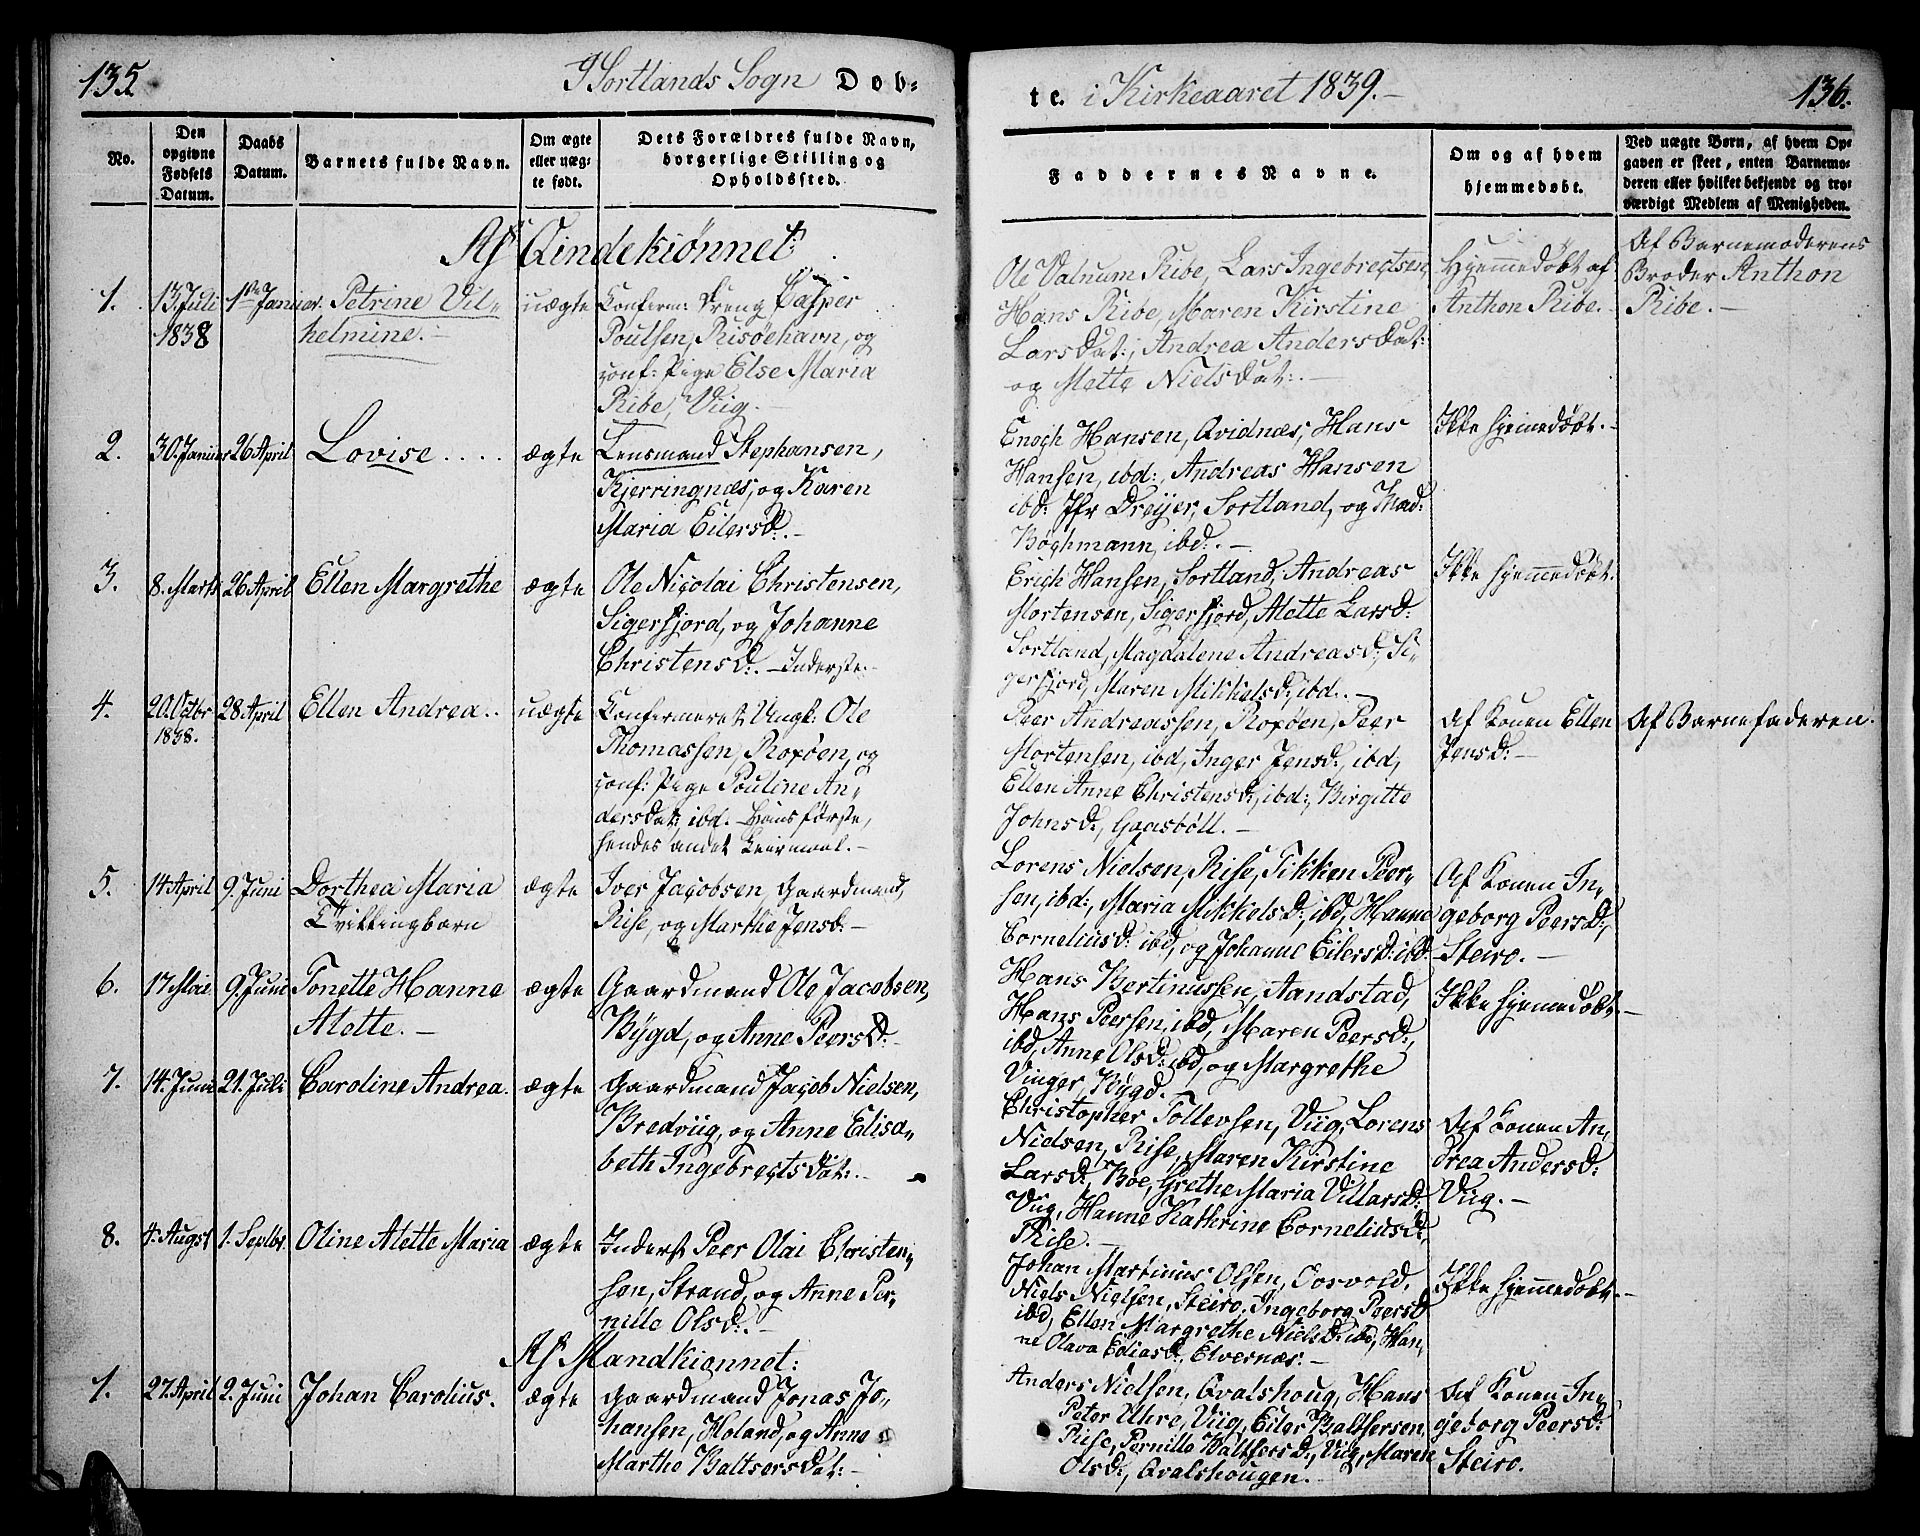 135
I Sortlands Sogn Dob-
No.
Den opgivne Fødsels Datum.
Daabs Datum.
Barnets fulde Navn.
Om ægte eller uæg-te født.
Dets Forældres fulde Navn, borgerlige Stilling og Opholdssted.
Af Qindekiønnet:
1. 13 Juli 1ste Januar. Petrine Vil- uægte Konferm: Dreng Casper
1838 helmine. Poulsen, Risøehavn, og
conf: Pige Else Maria
Ribe, Viig.
2. 30. Januar 26 April Lovise.... ægte Lensmand Stephansen,
Kjerringnæs, og Karen
Maria Eilersd:
3. 8. Marts 26 April Ellen Margrethe ægte Ole Nicolai Christensen,
Sigerfjord, og Johanne
Christensd: - Inderste.
4. 20. Octbr 28 April Ellen Andrea.. uægte Confirmeret Ungk: Ole
1838. Thomassen, Roxøen, og
conf: Pige Pouline An-
dersdat: ibd. Hans første,
hendes andet Leiermaal.
5. 14 April 9. Juni Dorthea Maria ægte Iver Jacobsen, Gaardmand,
Tvillingbarn Rise, og Marthe Jensd:
6. 17 Mai 9. Juni Tonette Hanne ægte Gaardmand Ole Jacobsen,
Alette. Bygd, og Anne Peersd:
7. 14. Juni 21. Juli Caroline Andrea. ægte Gaardmand Jacob Nielsen,
Bredviig, og Anne Elisa-
beth Ingebregtsdat:
8. 4. Augst 1. Septbr. Oline Alette Maria ægte Inderst Peer Olai Christen-
sen, Strand, og Anne Per-
nille Olsd:
Af Mandkiønnet:
1. 27. April 2. Juni Johan Carolius. ægte Gaardmand Jonas Jo-
hansen, Holand, og Anne
Marthe Baltsersdat:
te. i Kirkeaaret 1839.
136.
Faddernes Navne.
Om og af hvem hjemmedøbt.
Ved uægte Børn, af hvem Op-gaven er skeet, enten Barnemo-deren eller hvilket bekjendt og tro-værdigt Medlem af Menigheden.
Ole Valnum Ribe, Lars Ingebregtsen, Hjemmedøbt af Af Barnemoderens
Hans Ribe, Maren Kirstine Anthon Ribe. Broder Anthon
Larsdat:, Andrea Andersdat: Ribe.
og Mette Nielsdat:
Enoch Hansen, Qvidnæs, Hans Ikke hjemmedøbt.
Hansen, ibd:, Andreas Hansen
ibd: Jfr Dreyer, Sortland, og Mad:
Boghmann, ibd:
Erich Hansen, Sortland, Andreas Ikke hjemmedøbt.
Mortensen, Sigerfjord, Alette Larsd:
Sortland, Magdalene Andreasd: Si-
gerfjord, Maren Mikkelsd:, ibd.
Peer Andreassen, Roxøen, Peer Af Konen Ellen Af Barnefaderen.
Mortensen, ibd, Inger Jensd:, ibd, Jensd:
Ellen Anne Christensd:, ibd:, Birgitte
Johnsd:, Gaasbøll.
Lorens Nielsen, Rise, Tikken Peer- Af Konen In-
sen, ibd:, Maria Mikkelsd:, ibd, Hanne geborg Peersd:,
Corneliusd: ibd, og Johanne Eilersd: ibd: Steiro.
Hans Bertinussen, Aandstad, Ikke hjemmedøbt.
Hans Peersen, ibd, Maren Peersd:,
ibd, Anne Olsd: ibd, og Margrethe
Vinger, Bygd.
Christopher Tollevsen, Viig, Lorens Af Konen An-
Nielsen, Rise, Maren Kirstine drea Andersd:
Larsd:, Boe, Grethe Maria Villarsd: Viig.
Viig, Hanne Kathrine Corneliusd:,
Rise.
Johan Martinus Olsen, Ikke hjemmedøbt.
Niels Nielsen, Steiro, Ingeborg Peersd:
ibd, Ellen Margrethe Nielsd: ibd, Han-
ne Olava Ediasd:, Elvernæs:
Anders Nielsen, Qvalshoug, Hans Af Konen In-
Peter Uhre, Viig, Eiler Baltsersen, geborg Peersd:
Rise, Pernille Baltsersd:, Viig, Maren Steiro.
Olsd:, Qvalshougen.